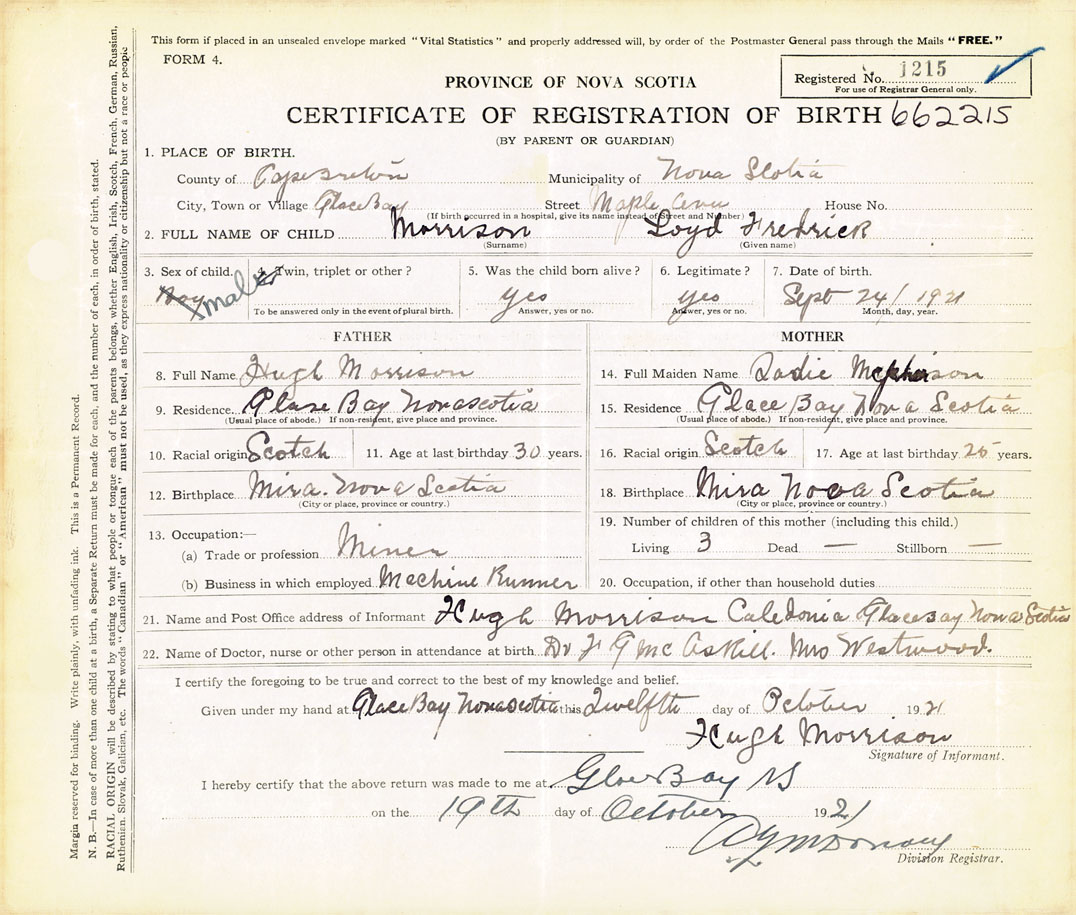 This form if placed in an unsealed envelope marked "Vital Statistics" and properly addressed will, by order of the Postmaster General pass through the Mails "FREE."
FORM 4.
Registered No. 1215
For use of Registrar General only.
PROVINCE OF NOVA SCOTIA
CERTIFICATE OF REGISTRATION OF BIRTH 662215
(BY PARENT OR GUARDIAN)
1. PLACE OF BIRTH.
County of Cape Breton Municipality of Nova Scotia
City, Town or Village Glace Bay Street Maple Ave House No.
(If birth occurred in a hospital, give its name instead of Street and Number)
2. FULL NAME OF CHILD Morrison Loyd Fredrick
(Surname) (Given name)
3. Sex of child. 4. Twin, triplet or other? 5. Was the child born alive? 6. Legitimate? 7. Date of birth.
Boy male yes yes Sept 24/1921
To be answered only in the event of plural birth. Answer, yes or no. Answer, yes or no. Month, day, year.
FATHER
8. Full Name Hugh Morrison
9. Residence Glase Bay Novascotia
(Usual place of abode.) If non-resident, give place and province.
10. Racial origin Scotch 11. Age at last birthday 30 years.
12. Birthplace Mira. Nova Scotia
(City or place, province or country.)
13. Occupation:—
(a) Trade or profession Miner
(b) Business in which employed Mechine Runner
MOTHER
14. Full Maiden Name Sadie
15. Residence Glace Bay Nova Scotia
(Usual place of abode.) If non-resident, give place and province.
16. Racial origin Scotch 17. Age at last birthday 25 years.
18. Birthplace Mira Nova Scotia
(City or place, province or country.)
19. Number of children of this mother (including this child.)
Living 3 Dead — Stillborn —
20. Occupation, if other than household duties
21. Name and Post Office address of Informant Hugh Morrison Caledonia Glacebay Nova Scotia
22. Name of Doctor, nurse or other person in attendance at birth Dr F G McAskill. Mrs Westwood.
I certify the foregoing to be true and correct to the best of my knowledge and belief.
Given under my hand at Glace Bay Novascotia this Twelfth day of October 1921
Hugh Morrison
Signature of Informant.
I hereby certify that the above return was made to me at Glace Bay NS
on the 19th day of October 1921
Division Registrar.
Margin reserved for binding. Write plainly, with unfading ink. This is a Permanent Record.
N. B.—In case of more than one child at a birth, a Separate Return must be made for each, and the number of each, in order of birth, stated.
RACIAL ORIGIN will be described by stating to what people or tongue each of the parents belongs, whether English, Irish, Scotch, French, German, Russian,
Ruthenian, Slovak, Galician, etc. The words "Canadian" or "American" must not be used, as they express nationality or citizenship but not a race or people